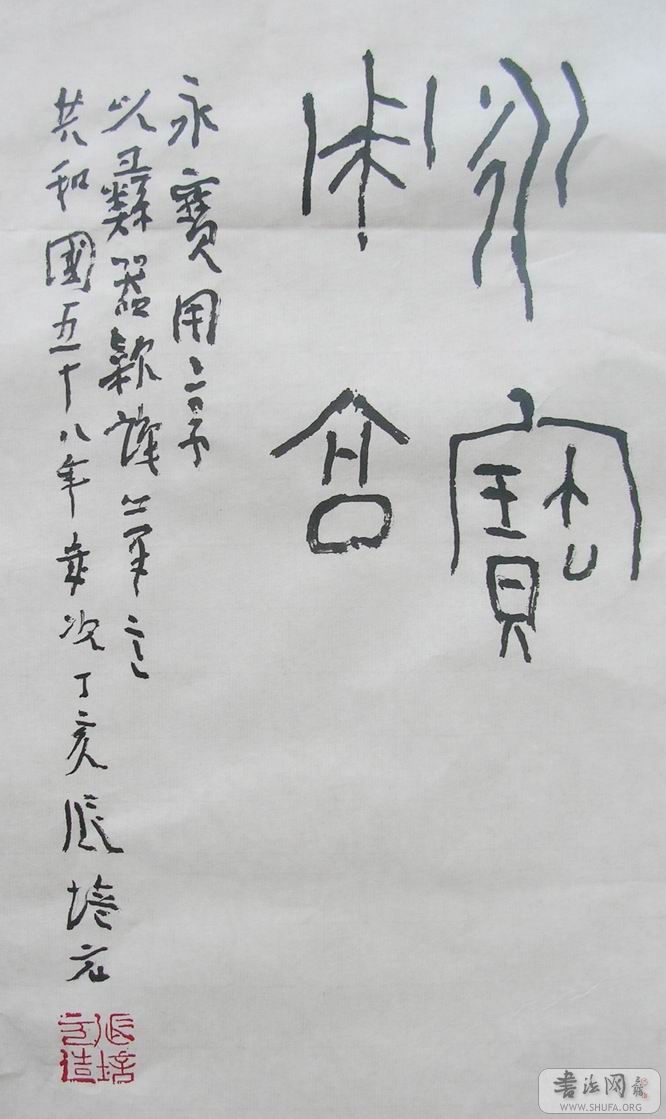 永寶
永寶用
以彝器款識筆之
共和國五十八年歲次丁亥張培元
張培
元造
書法网
WWW.SHUFA.ORG